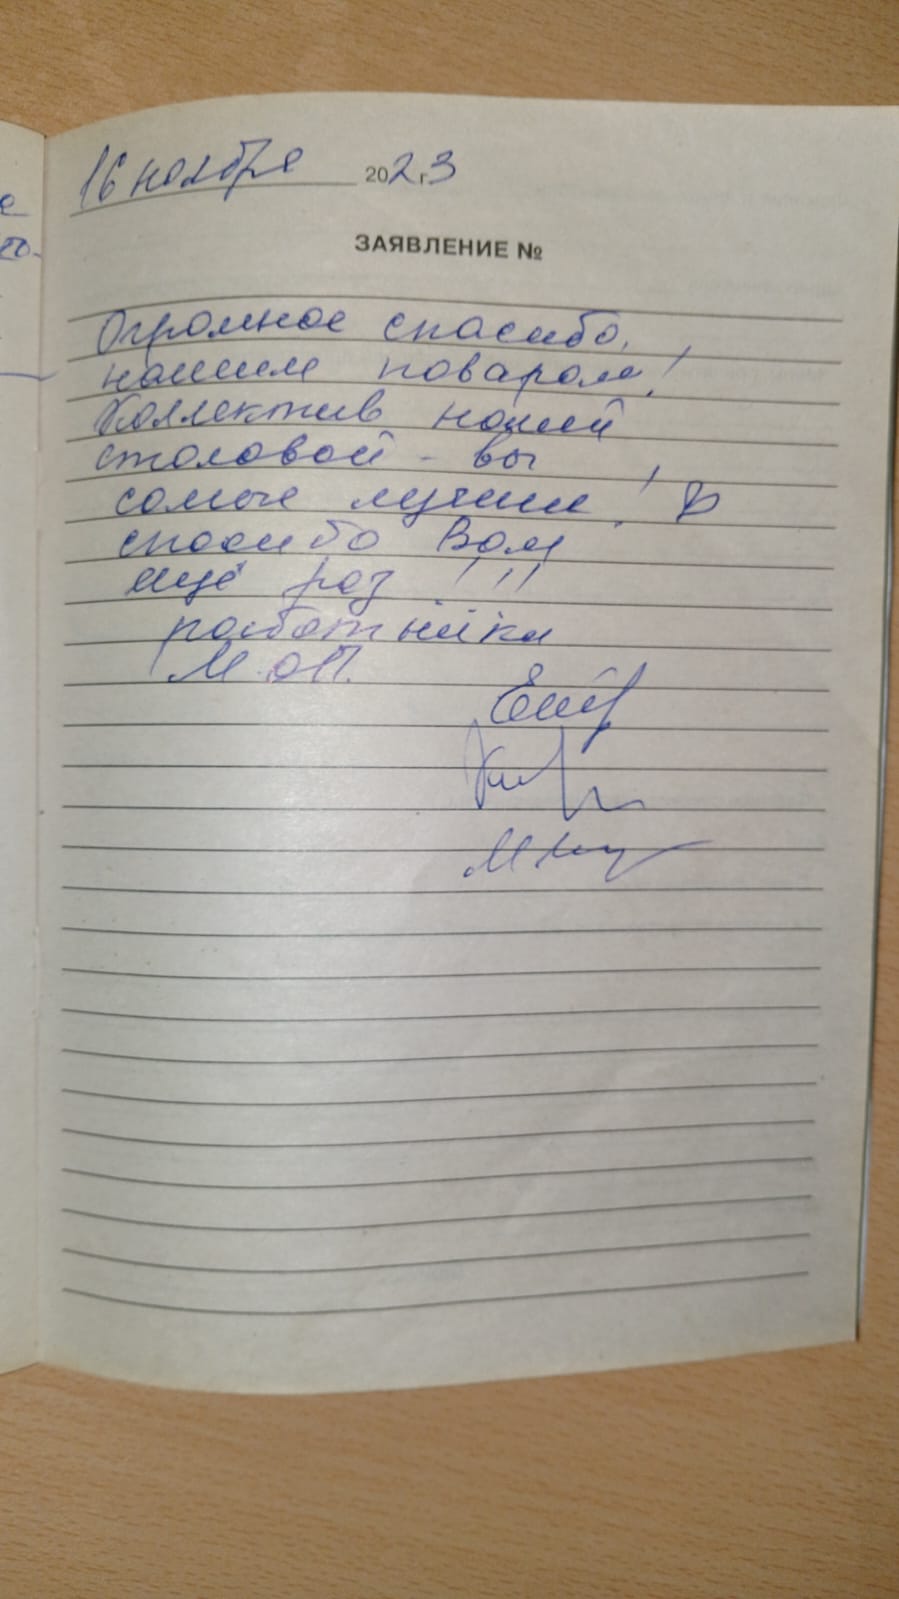 16 ноября 2023 г
ЗАЯВЛЕНИЕ №
Огромное спасибо,
нашим поварам!
Коллектив нашей
столовой - вы
самые лучшие!
спасибо Вам
ещё раз!!!
работники
М.О.П.